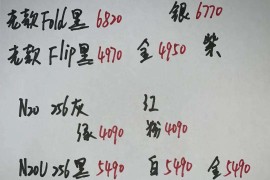 老款Fold黑6820 银6770
老款Flip黑4970 金4950 紫
N20 256灰 红
绿4090 粉4090
N20U 256黑5490 白5490 金5490